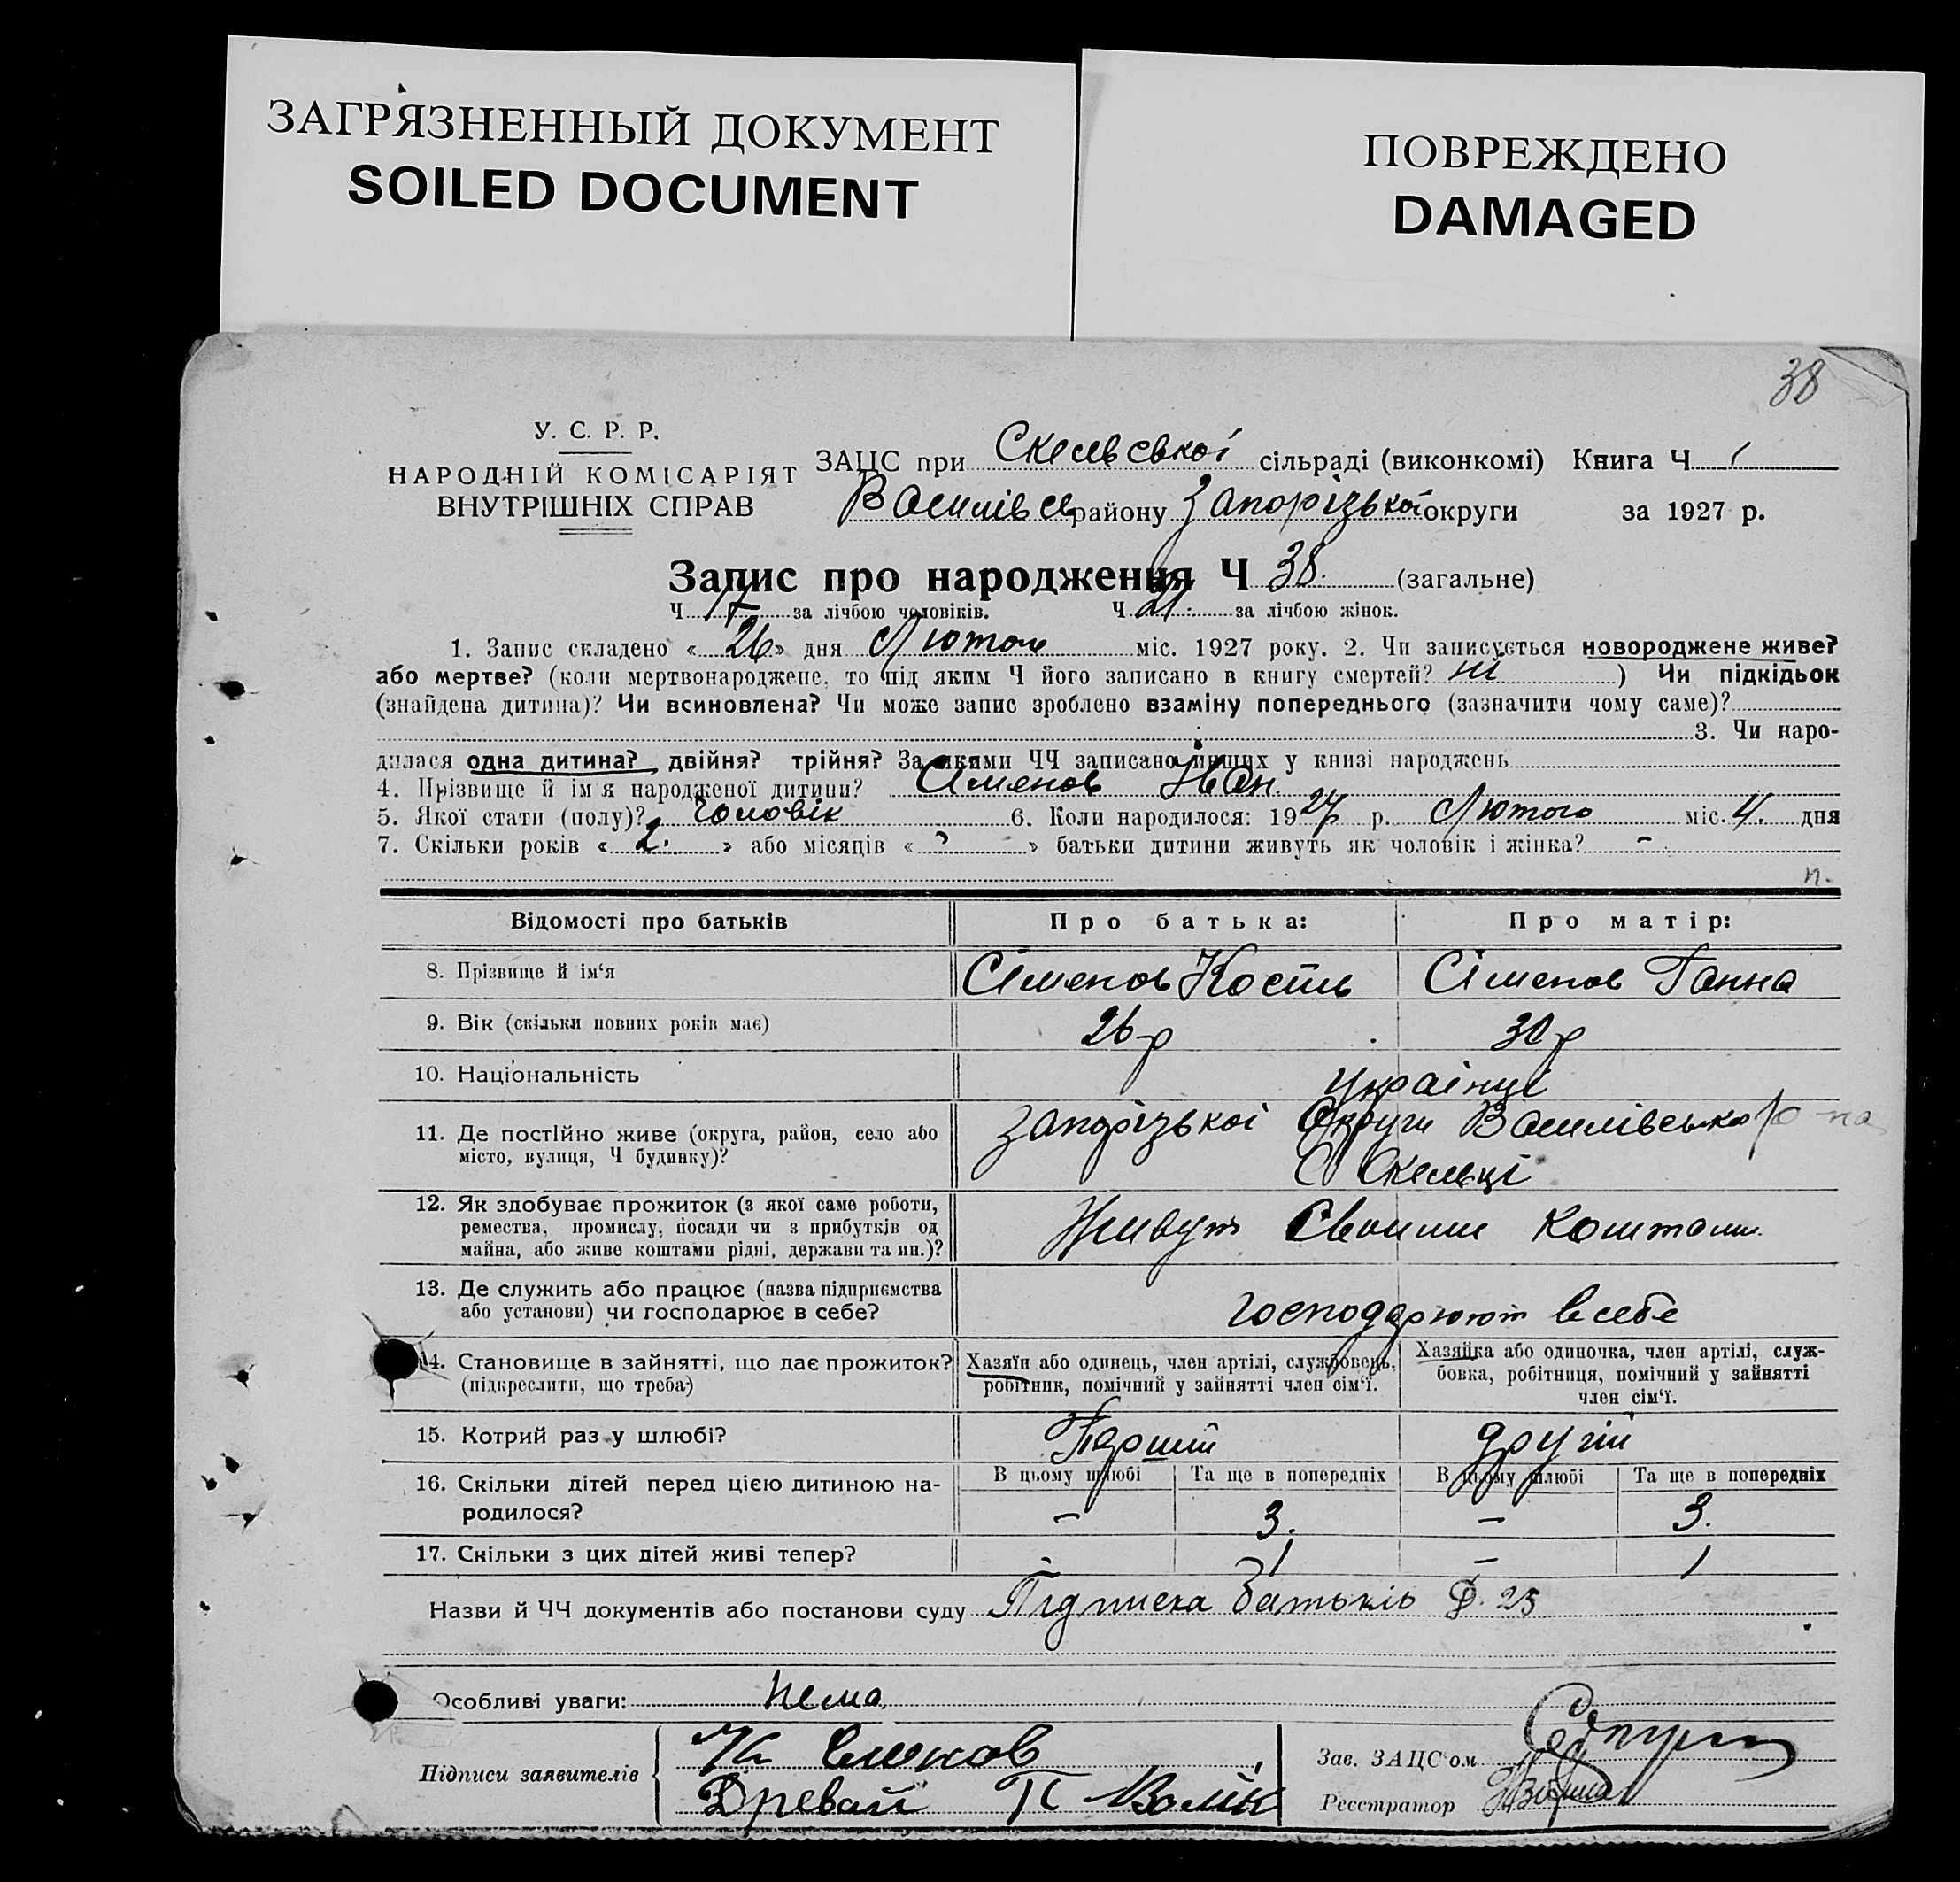 ЗАГРЯЗНЕННЫЙ ДОКУМЕНТ
SOILED DOCUMENT
ПОВРЕЖДЕНО
DAMAGED
38
У. С. Р. Р.
НАРОДНІЙ КОМІСАРІЯТ
ВНУТРІШНІХ СПРАВ
ЗАЦС при Скельської сільраді (виконкомі) Книга Ч 1
району Запорізької округи за 1927 р.
Запис про народження Ч 38. (загальне)
Ч 17 за лічбою чоловіків. Ч 21. за лічбою жінок.
1. Запис складено « 26 » дня Лютого міс. 1927 року. 2. Чи записується новороджене живе?
або мертве? (коли мертвонароджене, то під яким Ч його записано в книгу смертей? ні ) Чи підкідьок
(знайдена дитина)? Чи всиновлена? Чи може запис зроблено взаміну попереднього (зазначити чому саме)?
3. Чи наро-
дилася одна дитина? двійня? трійня? За якими ЧЧ записано інших у книзі народжень
4. Прізвище й ім'я народженої дитини? Сіменов Іван.
5. Якої стати (полу)? Чоловік 6. Коли народилося: 1927 р. Лютого міс. 4. дня
7. Скільки років « 2. » або місяців « ? » батьки дитини живуть як чоловік і жінка? -
п.
Відомості про батьків Про батька: Про матір:
8. Прізвище й ім'я Сіменов Кость Сіменов Ганна
9. Вік (скільки повних років має) 26 р 30 р
10. Національність Українці
11. Де постійно живе (округа, район, село або місто, вулиця, Ч будинку)? Запорізької Округи Василівсько р-на
С Скельці
12. Як здобуває прожиток (з якої саме роботи,
ремества, промислу, посади чи з прибутків од
майна, або живе коштами рідні, держави та ин.)? Живут Своими коштами.
13. Де служить або працює (назва підприємства
або установи) чи господарює в себе? господарюют в себе
14. Становище в зайнятті, що дає прожиток?
(підкреслити, що треба)
Хазяїн або одинець, член артілі, службовець,
робітник, помічний у зайнятті член сім'ї.
Хазяйка або одиночка, член артілі, служ-
бовка, робітниця, помічний у зайнятті
член сім'ї.
15. Котрий раз у шлюбі? Перший другій
16. Скільки дітей перед цією дитиною на-
родилося?
В цьому шлюбі Та ще в попередніх В цьому шлюбі Та ще в попередніх
- 3. - 3.
17. Скільки з цих дітей живі тепер? - 1 - 1
Назви й ЧЧ документів або постанови суду Підписка батьків Ф. 25
Особливі уваги: нема.
Підписи заявителів
Зав. ЗАЦС'ом
Древаль П
Реєстратор